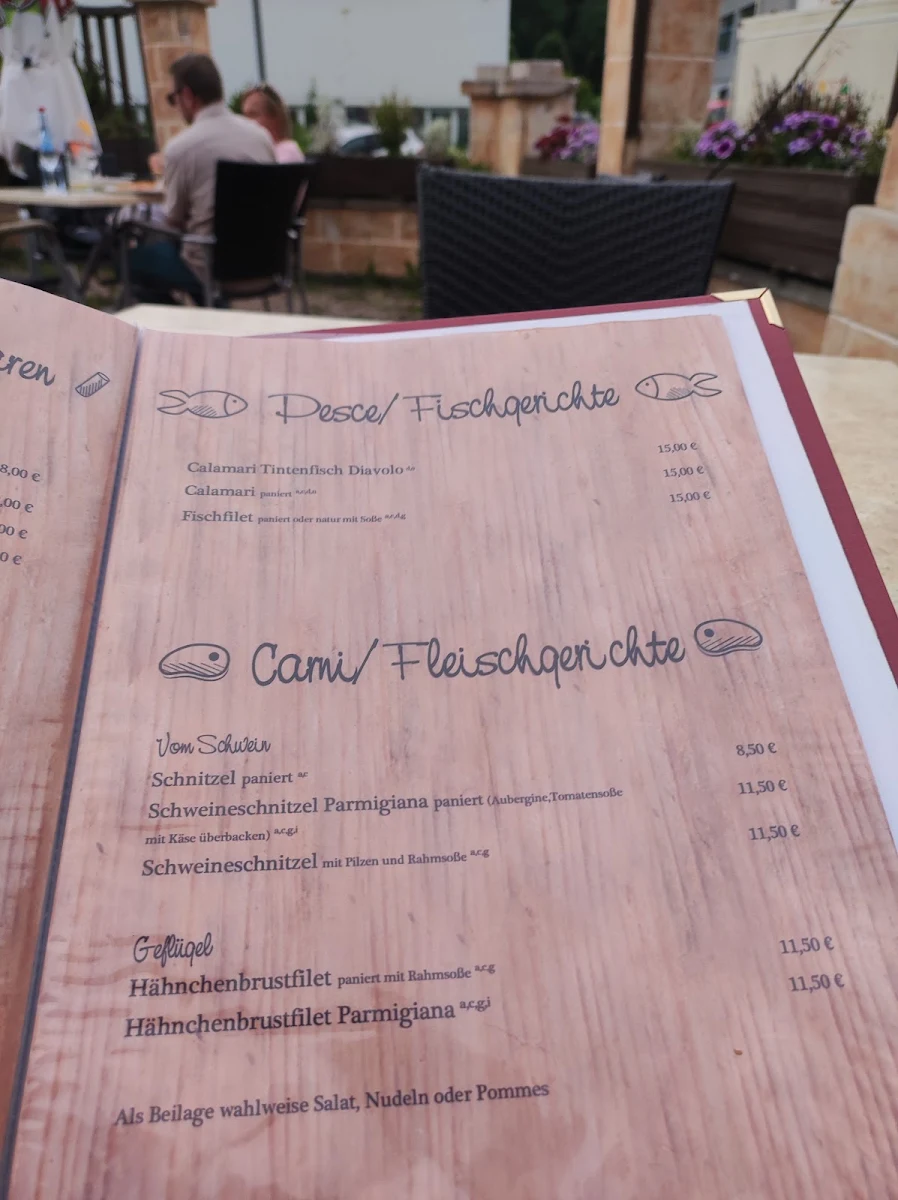 8,00 €
,00 €
00 €
0 €
Pesce/ Fischgerichte
Calamari Tintenfisch Diavolo 15,00 €
Calamari paniert 15,00 €
Fischfilet paniert oder natur mit Soße 15,00 €
Carni/ Fleischgerichte
Vom Schwein
Schnitzel paniert a,c 8,50 €
Schweineschnitzel Parmigiana paniert (Aubergine,Tomatensoße 11,50 €
mit Käse überbacken) a,c,g,i
Schweineschnitzel mit Pilzen und Rahmsoße a,c,g 11,50 €
Geflügel
Hähnchenbrustfilet paniert mit Rahmsoße a,c,g 11,50 €
Hähnchenbrustfilet Parmigiana a,c,g,i 11,50 €
Als Beilage wahlweise Salat, Nudeln oder Pommes